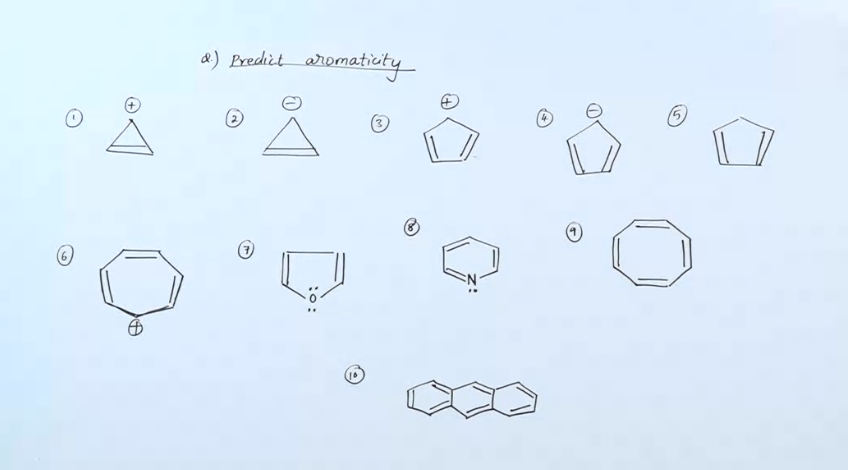 Q.) Predict aromaticity
① ⊕ ② ⊖ ③ ⊕ ④ ⊖ ⑤
⑥ ⑦ ⑧ ⑨
N
O
⊕
⑩